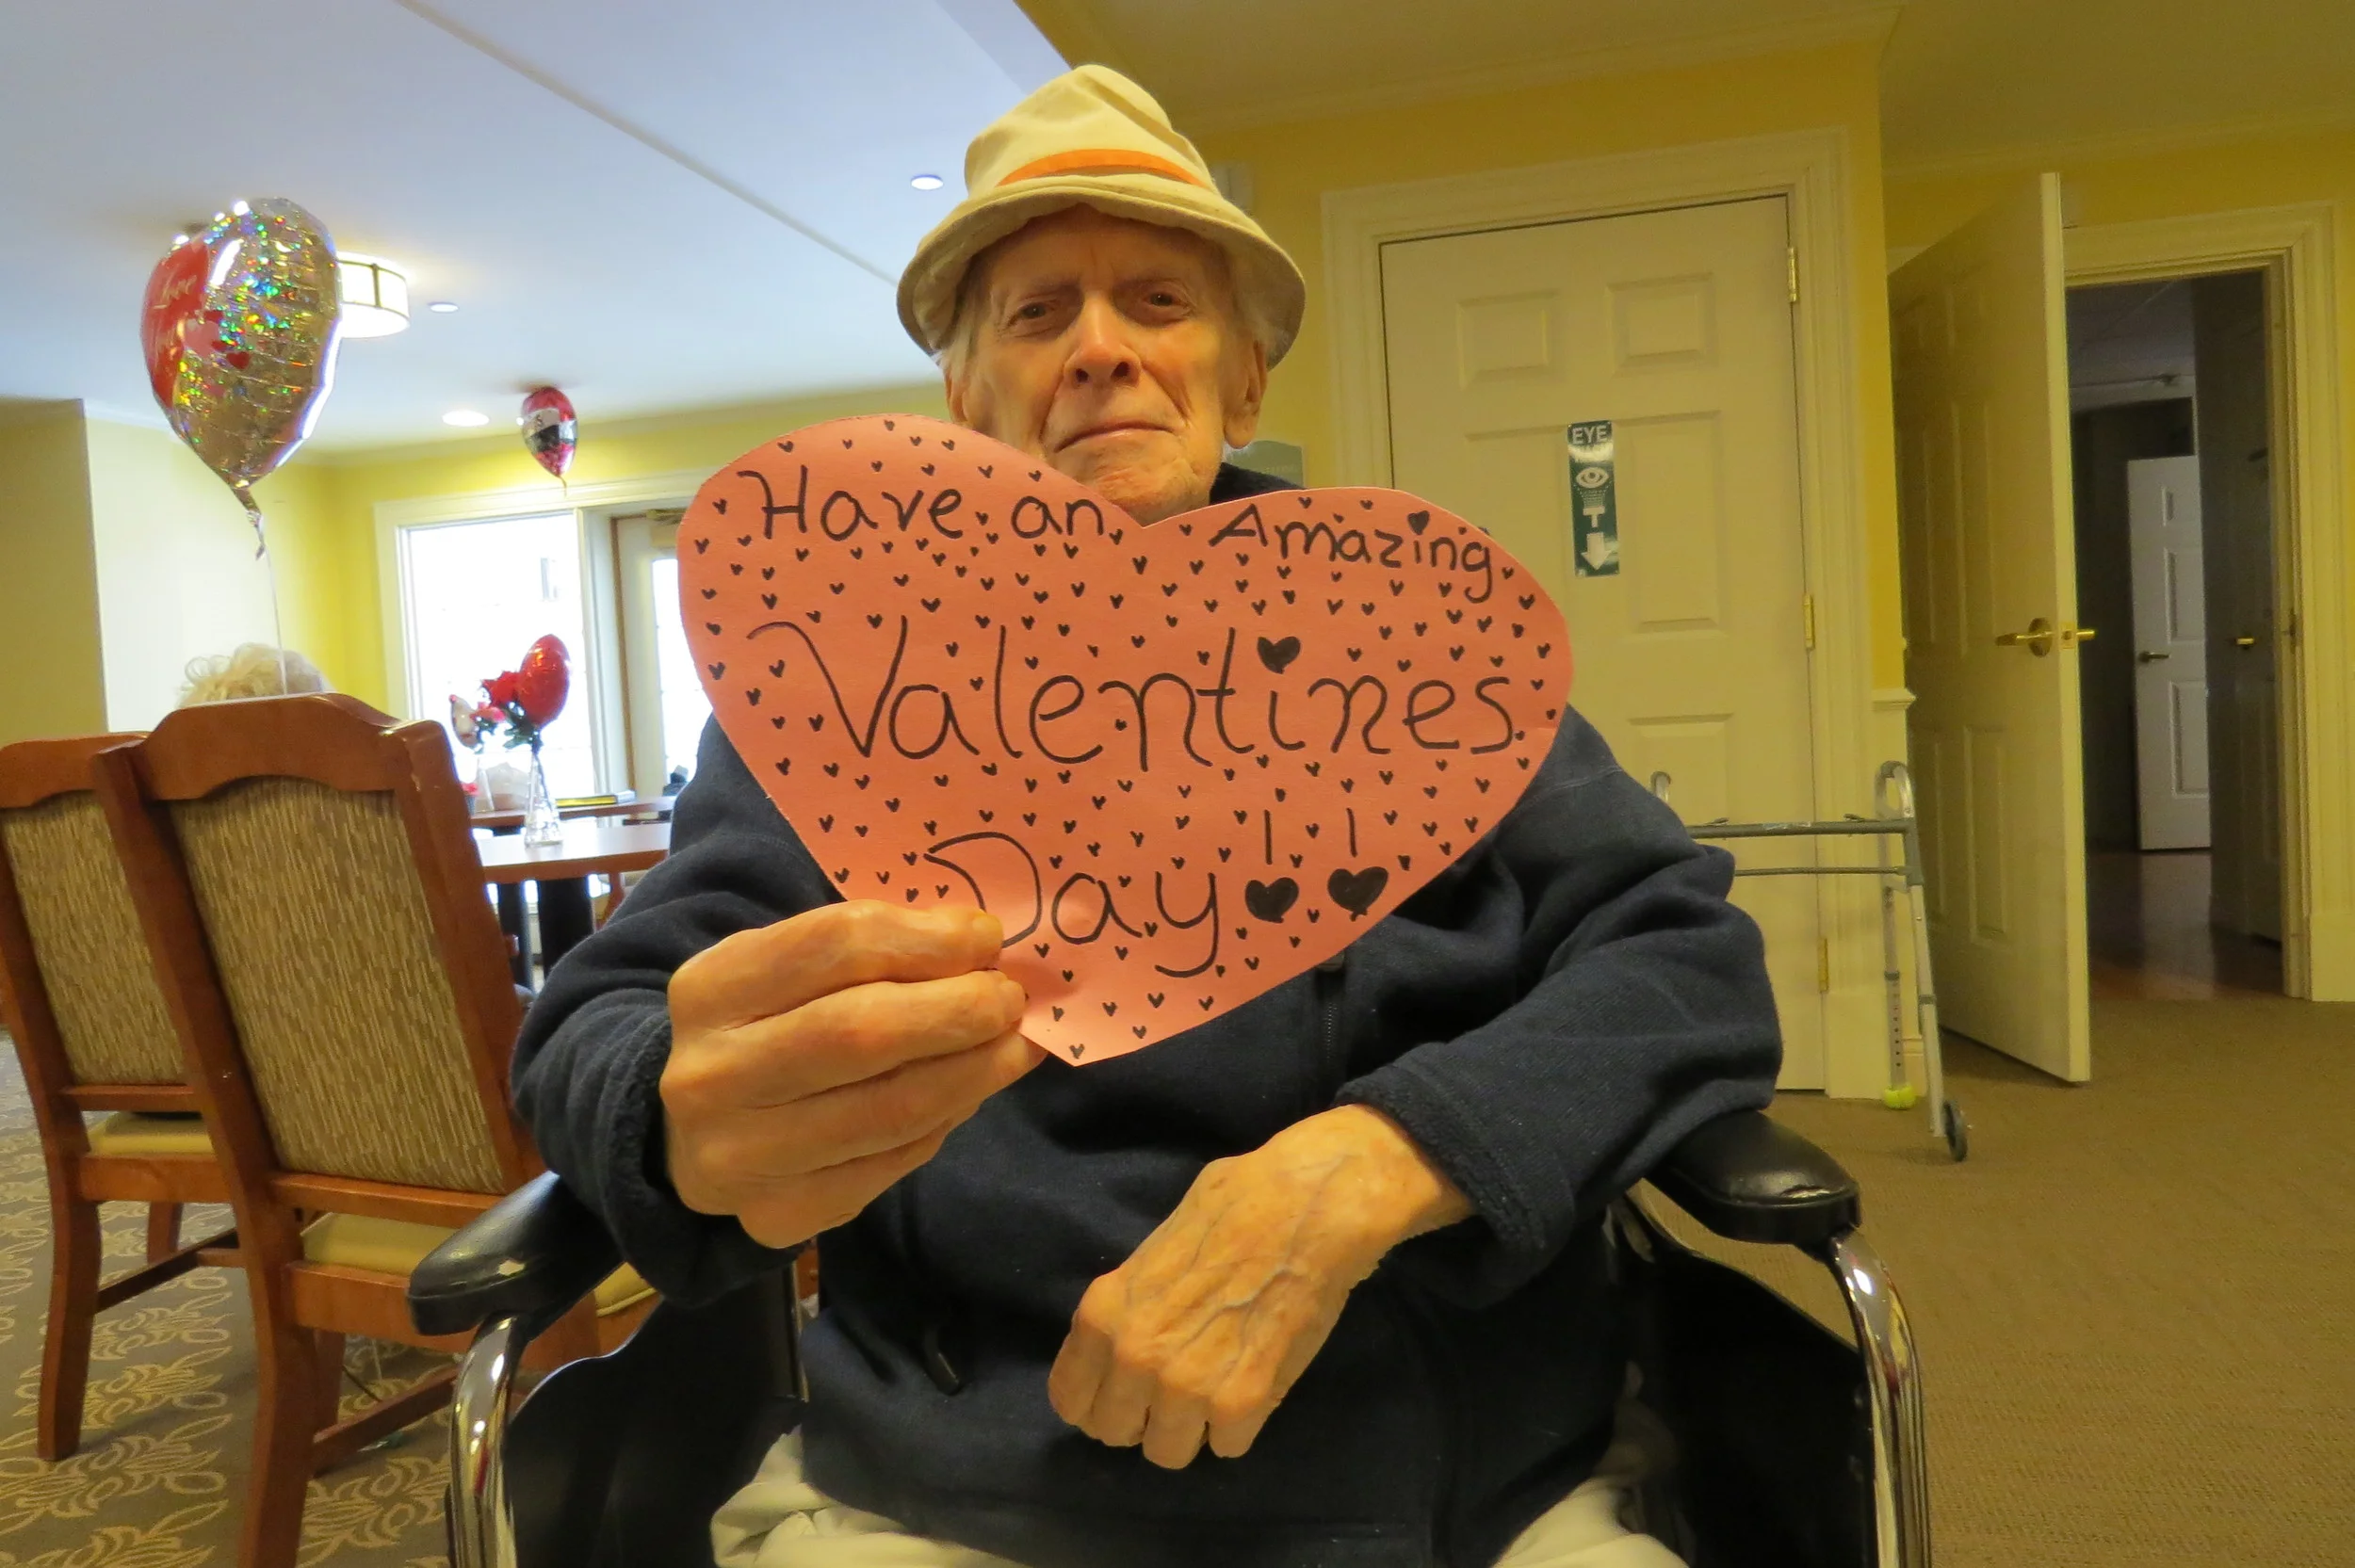 Have an Amazing
Valentines
Day!!
EYE
Love